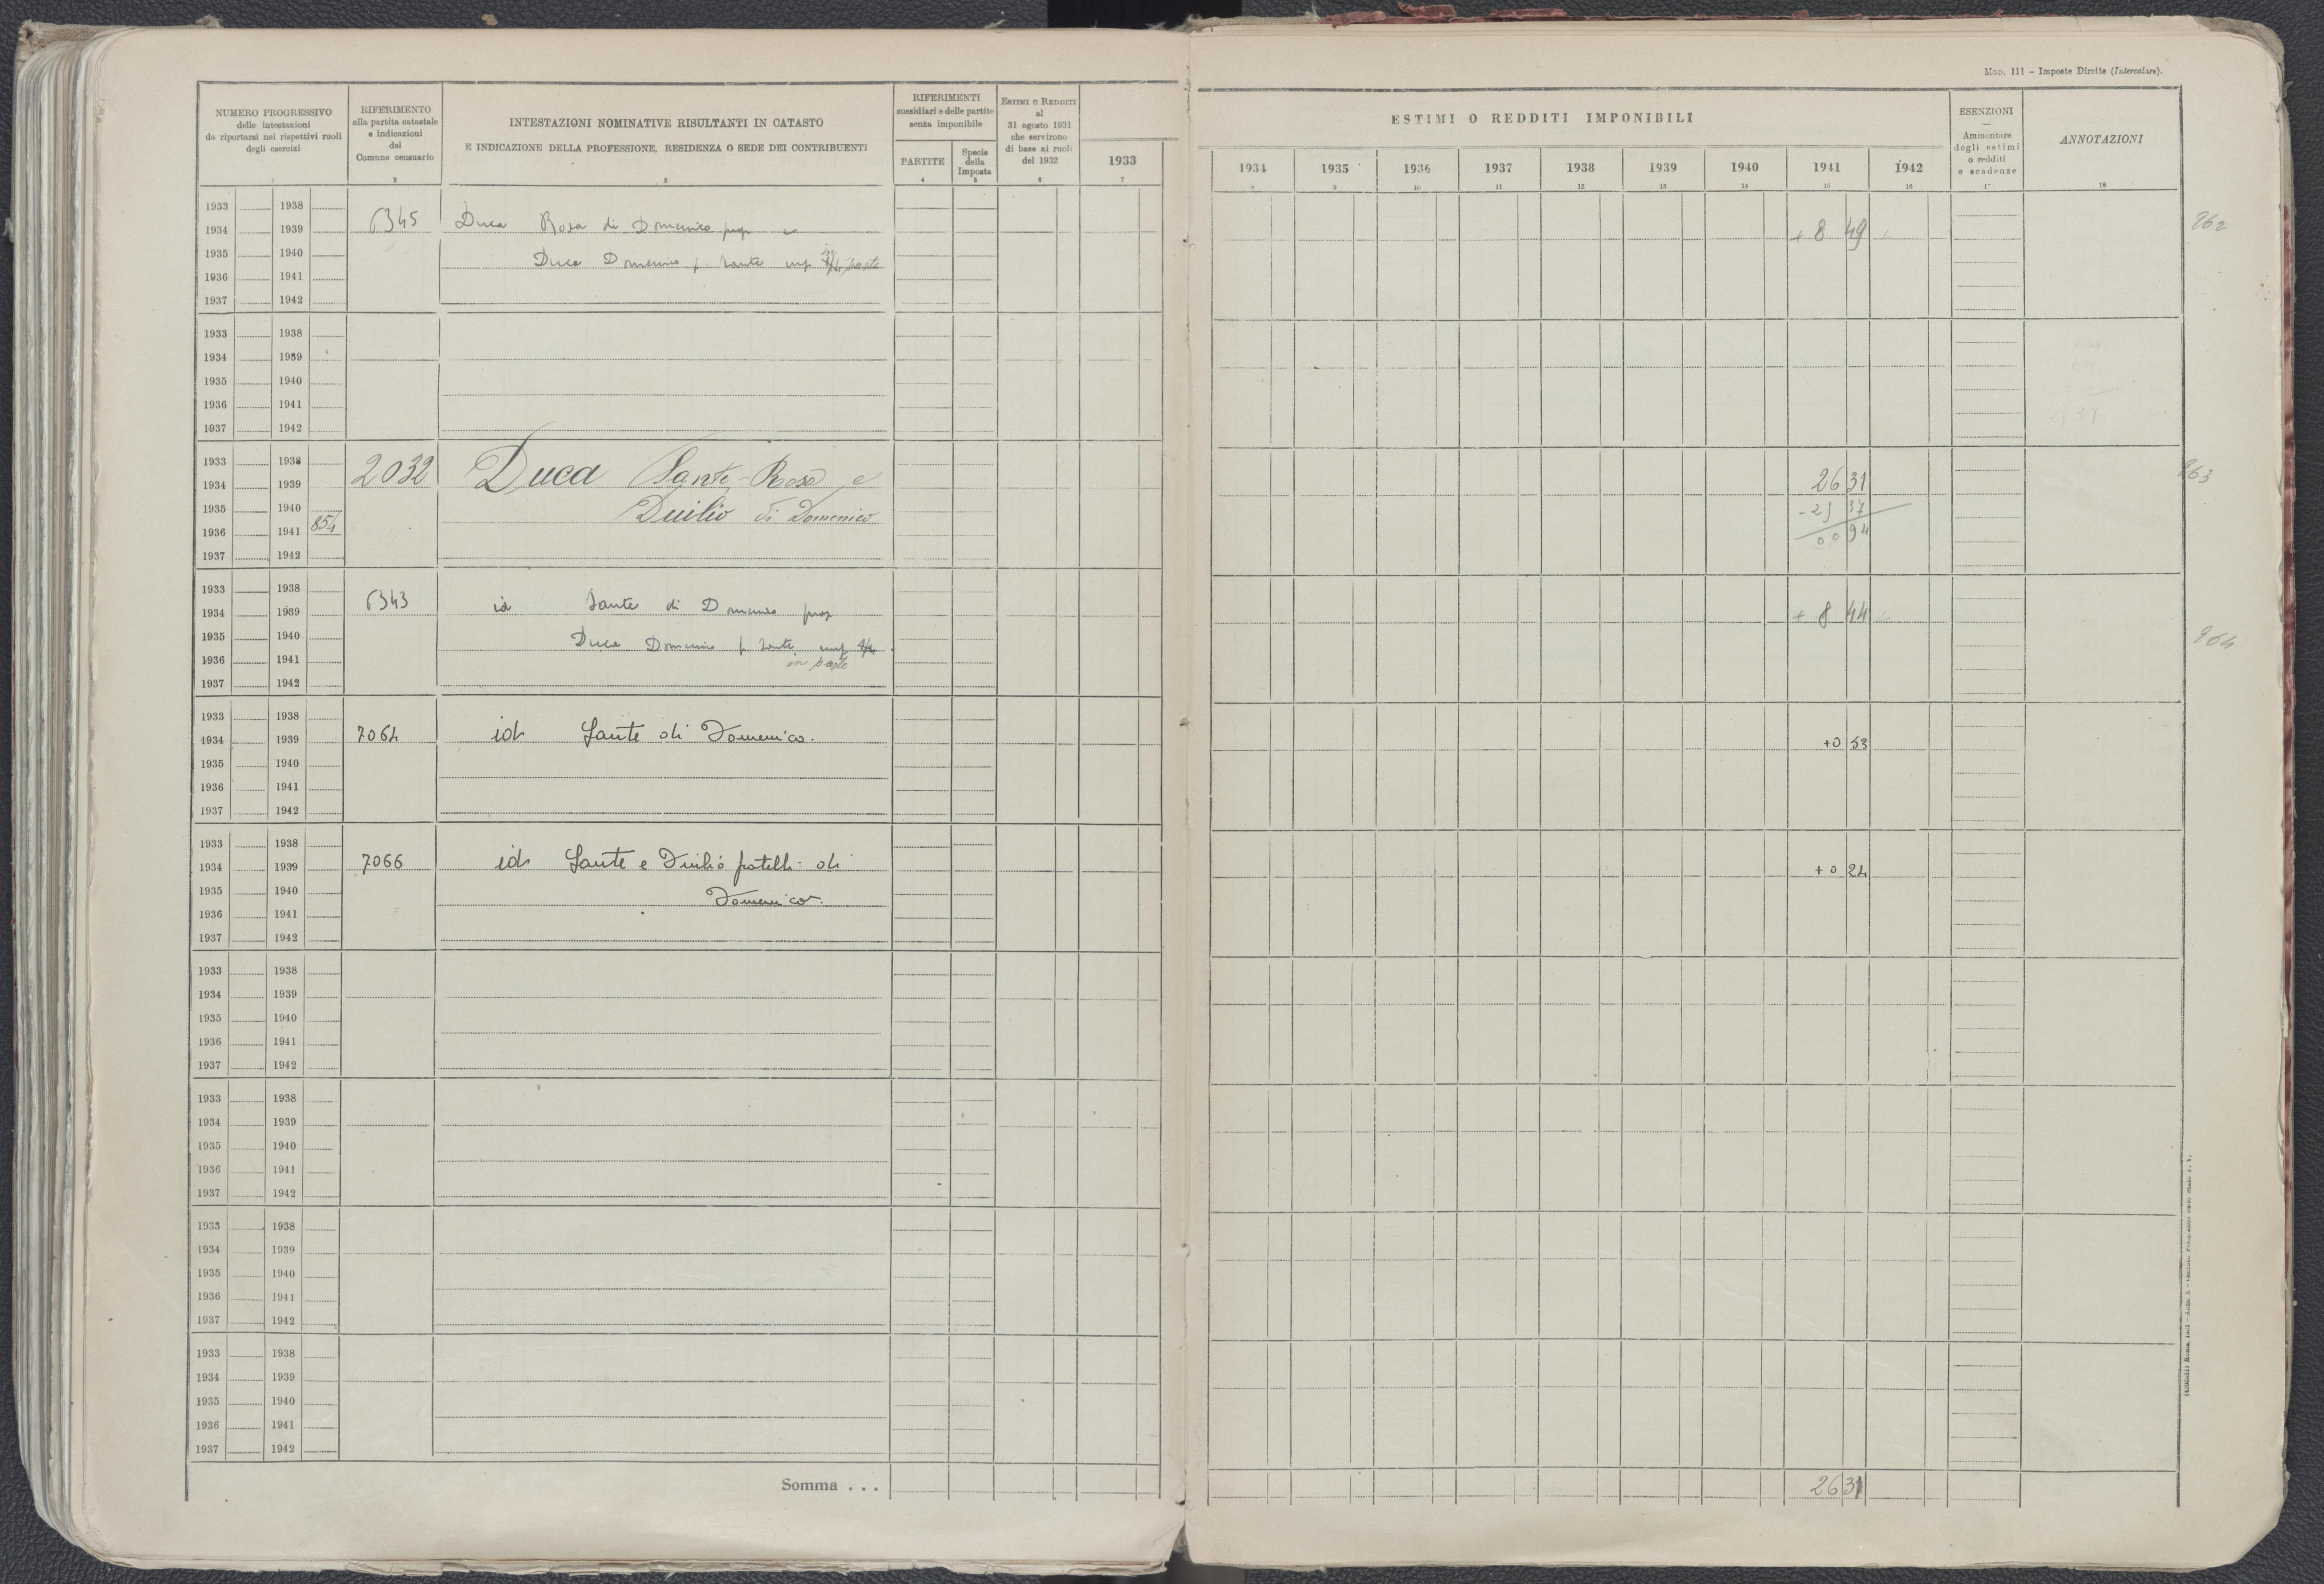 Mod. 111 - Imposte Dirette (Intercalare).
NUMERO PROGRESSIVO
delle intestazioni
da riportarsi nei rispettivi ruoli
degli esercizi
1
RIFERIMENTO
alla partita catastale
e indicazioni
del
Comune censuario
2
INTESTAZIONI NOMINATIVE RISULTANTI IN CATASTO
E INDICAZIONE DELLA PROFESSIONE, RESIDENZA O SEDE DEI CONTRIBUENTI
3
RIFERIMENTI
sussidiari e delle partite
senza imponibile
PARTITE
4
Specie
della
Imposta
5
Estimi o Redditi
al
31 agosto 1931
che servirono
di base ai ruoli
del 1932
6
ESTIMI O REDDITI IMPONIBILI
1933 1934 1935 1936 1937 1938 1939 1940 1941 1942
7 8 9 10 11 12 13 14 15 16
ESENZIONI
—
Ammontare
degli estimi
o redditi
e scadenze
17
ANNOTAZIONI
18
1933 1938
1934 1939 6345 Duca Rosa di Domenico prop e + 8 49 962
1935 1940 Duca Domenico f Sante usuf in parte
1936 1941
1937 1942
1933 1938
1934 1939
1935 1940
1936 1941
1937 1942
1933 1938
1934 1939 2032 Duca Sante, Rosa e 26 31 963
1935 1940 Duilio di Domenico - 25 37
1936 1941 854 00 94
1937 1942
1933 1938
1934 1939 6343 id Sante di Domenico prop + 8 44
1935 1940 Duca Domenico f Sante usuf 964
1936 1941 in parte
1937 1942
1933 1938
1934 1939 7064 id Sante di Domenico. +0 53
1935 1940
1936 1941
1937 1942
1933 1938
1934 1939 7066 id Sante e Duilio fratelli di + 0 24
1935 1940 Domenico.
1936 1941
1937 1942
1933 1938
1934 1939
1935 1940
1936 1941
1937 1942
1933 1938
1934 1939
1935 1940
1936 1941
1937 1942
1933 1938
1934 1939
1935 1940
1936 1941
1937 1942
1933 1938
1934 1939
1935 1940
1936 1941
1937 1942
Somma . . . 26 31